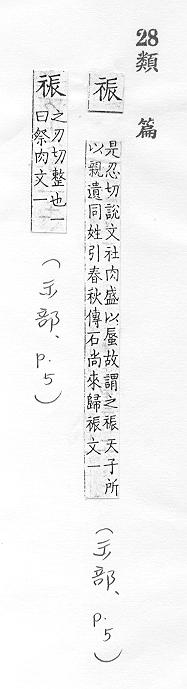 28類篇
祳
是忍切說文社肉盛以蜃故謂之祳天子所
以親遺同姓引春秋傳石尚來歸祳文一
(示部、p.5)
祳
之刃切整也一
曰祭肉文一
(示部、p.5)